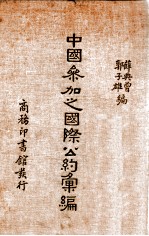 薛典曾
郭子雄 編
中國參加之國際公約彙編
商務印書館發行